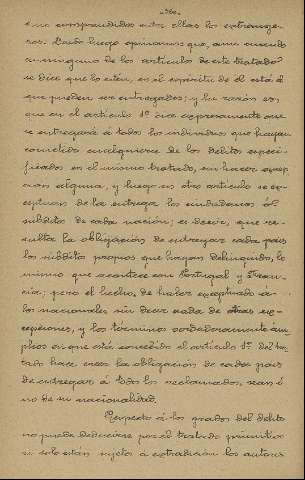 no comprendidos entre ellos los extranje-
ros. Desde luego opinamos que, aun cuando
en ninguno de los artículos de este tratado
se dice que lo estén, en el espíritu de él está el
que puedan ser entregados; y la razón es
que en el artículo 1º dice expresamente que
se entregará á todos los individuos que hayan
cometido cualquiera de los delitos especi-
ficados en el mismo tratado, sin hacer excep-
ción alguna, y luego en otro artículo se ex-
ceptúan de la entrega los ciudadanos ó
súbditos de cada nación; es decir, que re-
sulta la obligación de entregar cada país
los súbditos propios que hayan delinquido, lo
mismo que acontece con Portugal y Fran-
cia; pero el hecho de haber exceptuado á
los nacionales sin decir nada de otras ex-
cepciones, y los términos verdaderamente am-
plios en que está concebido el artículo 1º del tra-
tado hace creer la obligación de cada país
de entregar á todos los reclamados, sean ó
no de su nacionalidad.
Respecto á los grados del delito
no puede deducirse por el tratado primitivo
si solo están sujetos á extradición los autores